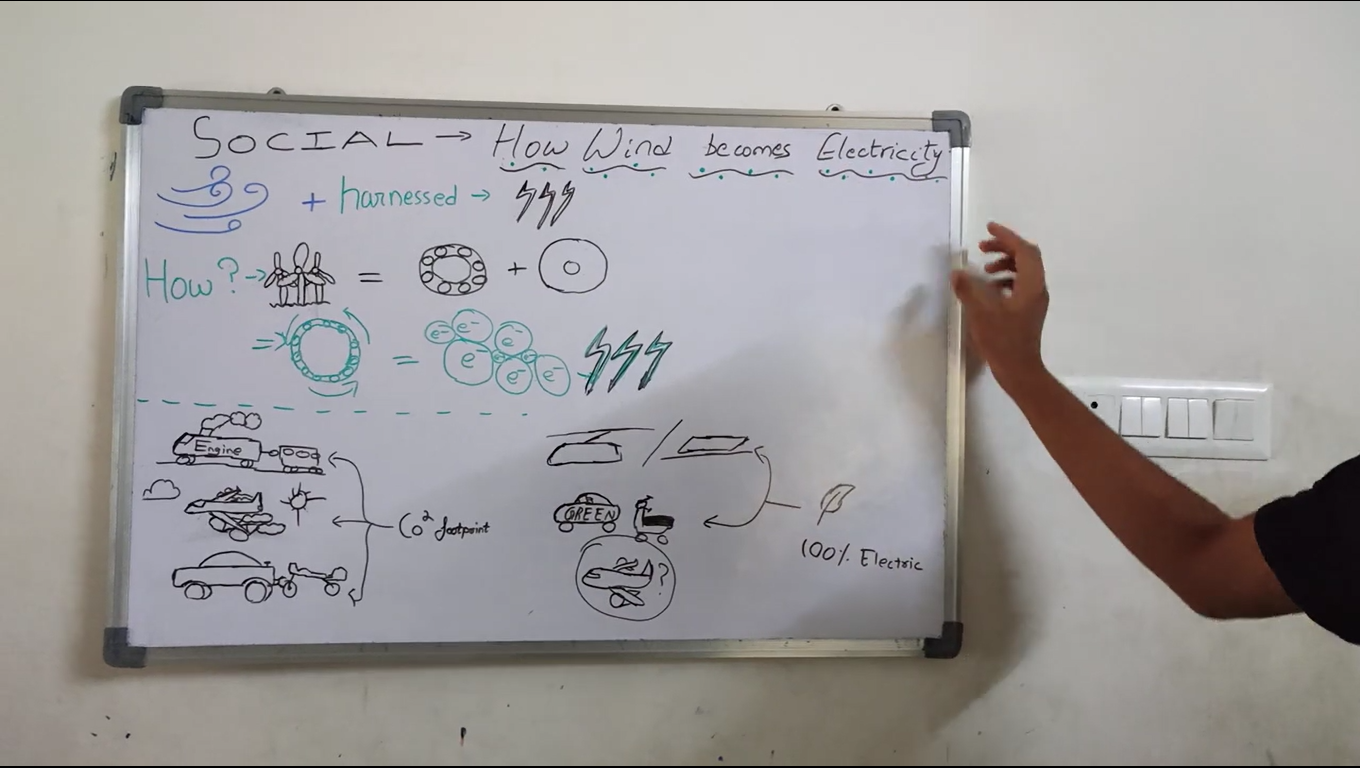 SOCIAL → How Wind becomes Electricity
+ harnessed →
How? → = +
= e⁻ e⁻ e⁻ e⁻ e⁻ e⁻ e⁻ e⁻
Engine
Co² footprint
GREEN
?
100% Electric